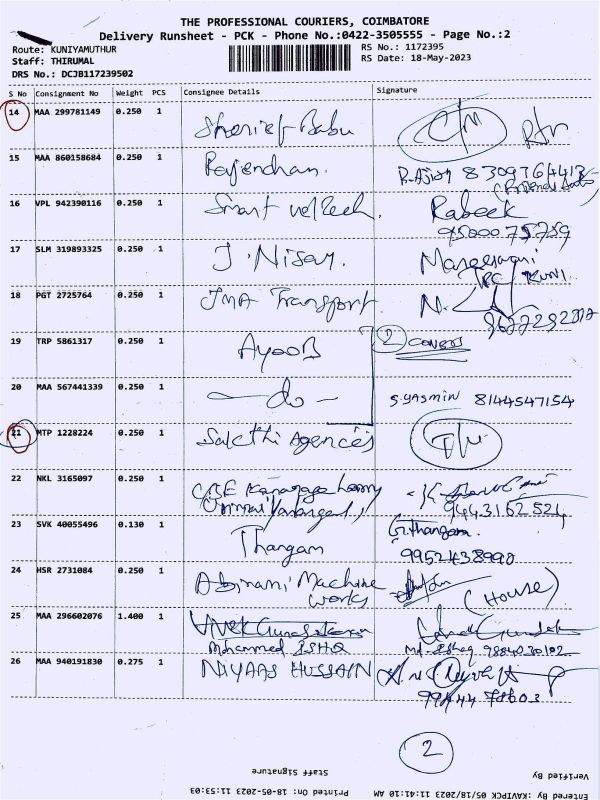 THE PROFESSIONAL COURIERS, COIMBATORE
Delivery Runsheet - PCK - Phone No.:0422-3505555 - Page No.:2
Route: KUNIYAMUTHUR RS No.: 1172395
Staff: THIRUMAL RS Date: 18-May-2023
DRS No.: DCJB117239502
S No Consignment No Weight PCS Consignee Details Signature
14 MAA 299781149 0.250 1 Sherief Babu
15 MAA 860158684 0.250 1 Rajendhan.
16 VPL 942390116 0.250 1 Smart Rabeek
95000 75759
17 SLM 319893325 0.250 1 J. Nisar.
18 PGT 2725764 0.250 1 JMA Transport N.
19 TRP 5861317 0.250 1 AYOOB 2 COVERS
20 MAA 567441339 0.250 1 -do- S.YASMIN 8144547154
21 MTP 1228224 0.250 1 Sakthi Agences
22 NKL 3165097 0.250 1 CBE
9443162521
23 SVK 40055496 0.130 1 Thangam G.Thangam
9952438990
24 HSR 2731084 0.250 1 Abinami Machine
works (HOUSE)
25 MAA 296602076 1.400 1
Mohammed ISHQ Md. Ishaq 9884030102
26 MAA 940191830 0.275 1 NIYAAS HUSSAIN
99444 78603
2
Staff Signature Verified By
Printed On: 18-05-2023 11:53:03 Entered By :KAVIPCK 05/18/2023 11:41:10 AM